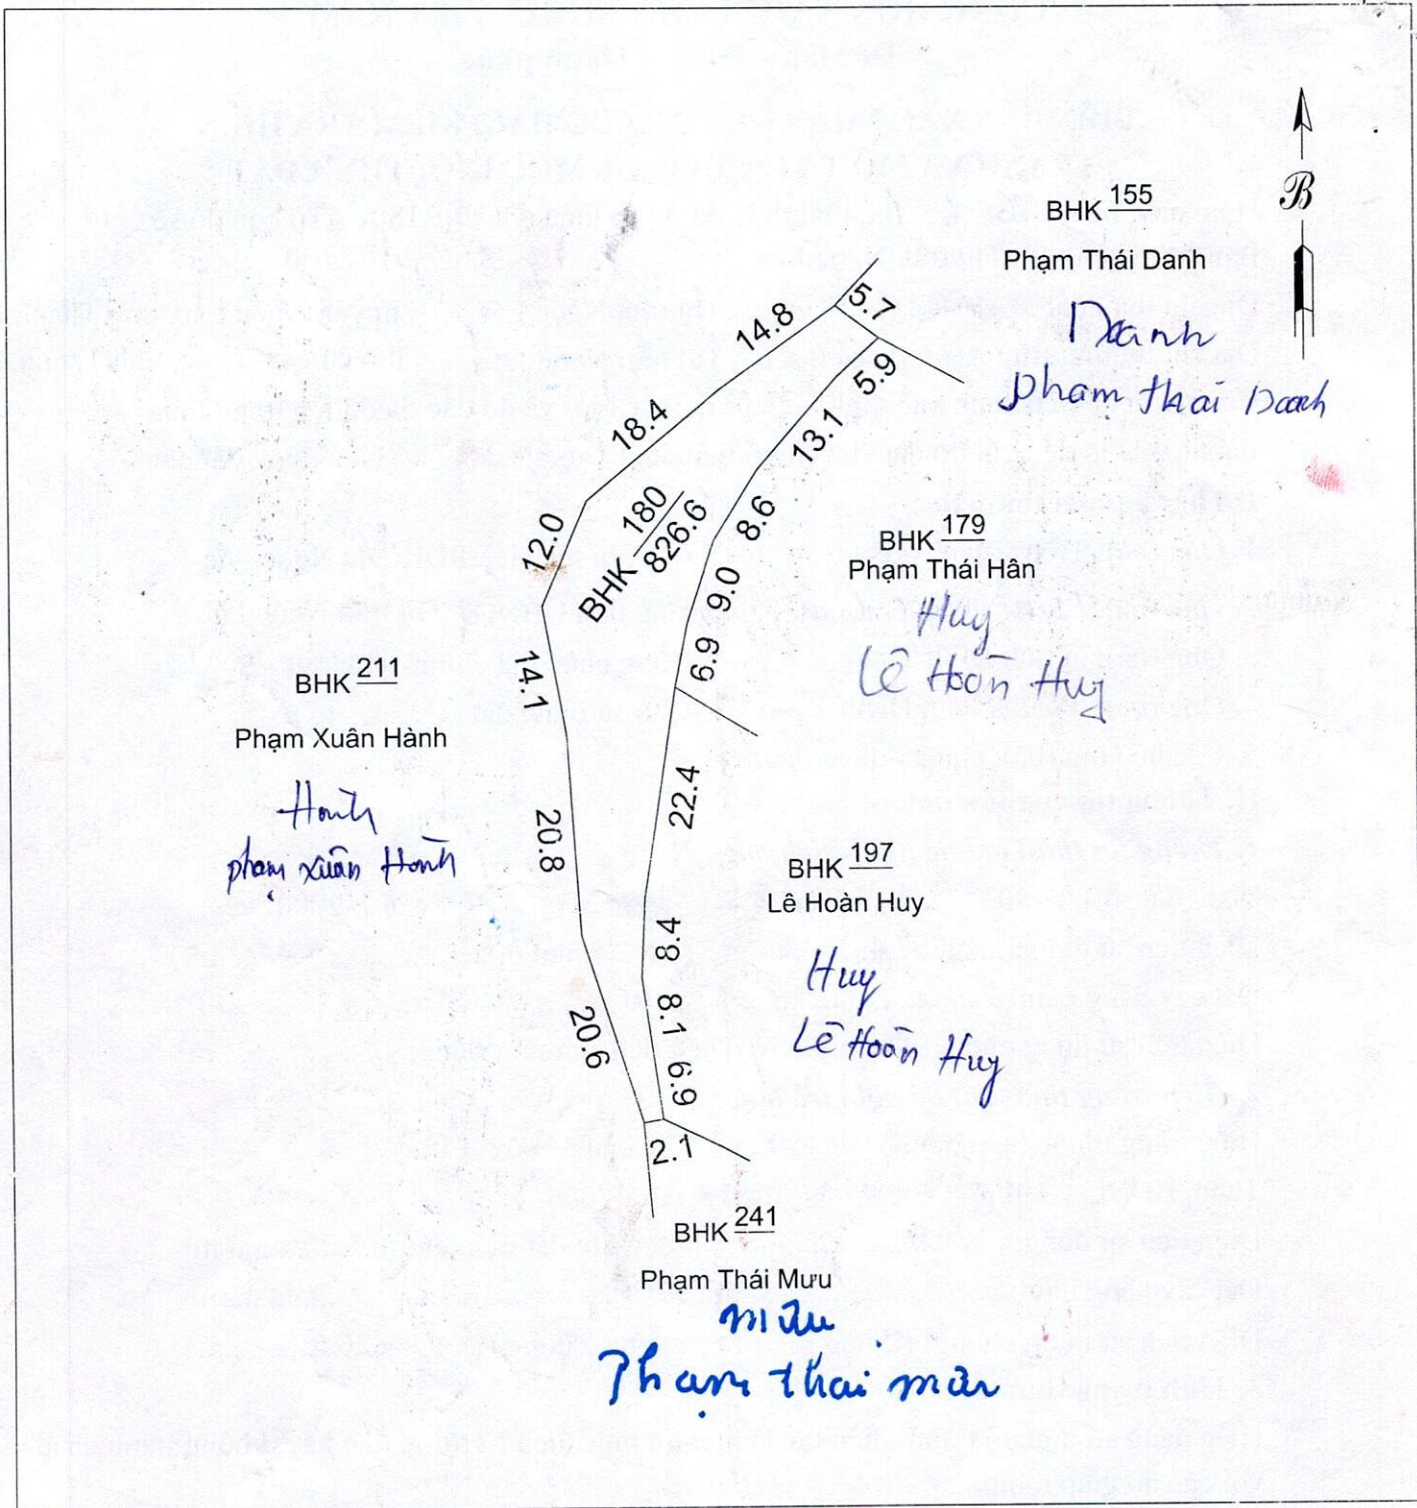 B
BHK 155
Phạm Thái Danh
Danh
phạm thái Danh
5.7
14.8
5.9
18.4
13.1
BHK 180
826.6
12.0
8.6
9.0
6.9
BHK 179
Phạm Thái Hân
Huy
Lê Hoàn Huy
14.1
BHK 211
Phạm Xuân Hành
Hành
phạm xuân Hành
22.4
20.8
BHK 197
Lê Hoàn Huy
Huy
Lê Hoàn Huy
8.4
8.1
20.6
6.9
2.1
BHK 241
Phạm Thái Mưu
mưu
Phạm thái mưu